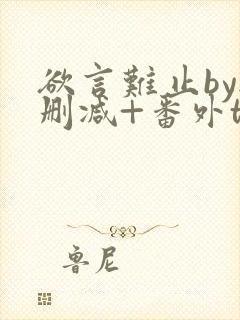 欲言难止by
删减+番外t
鲁尼